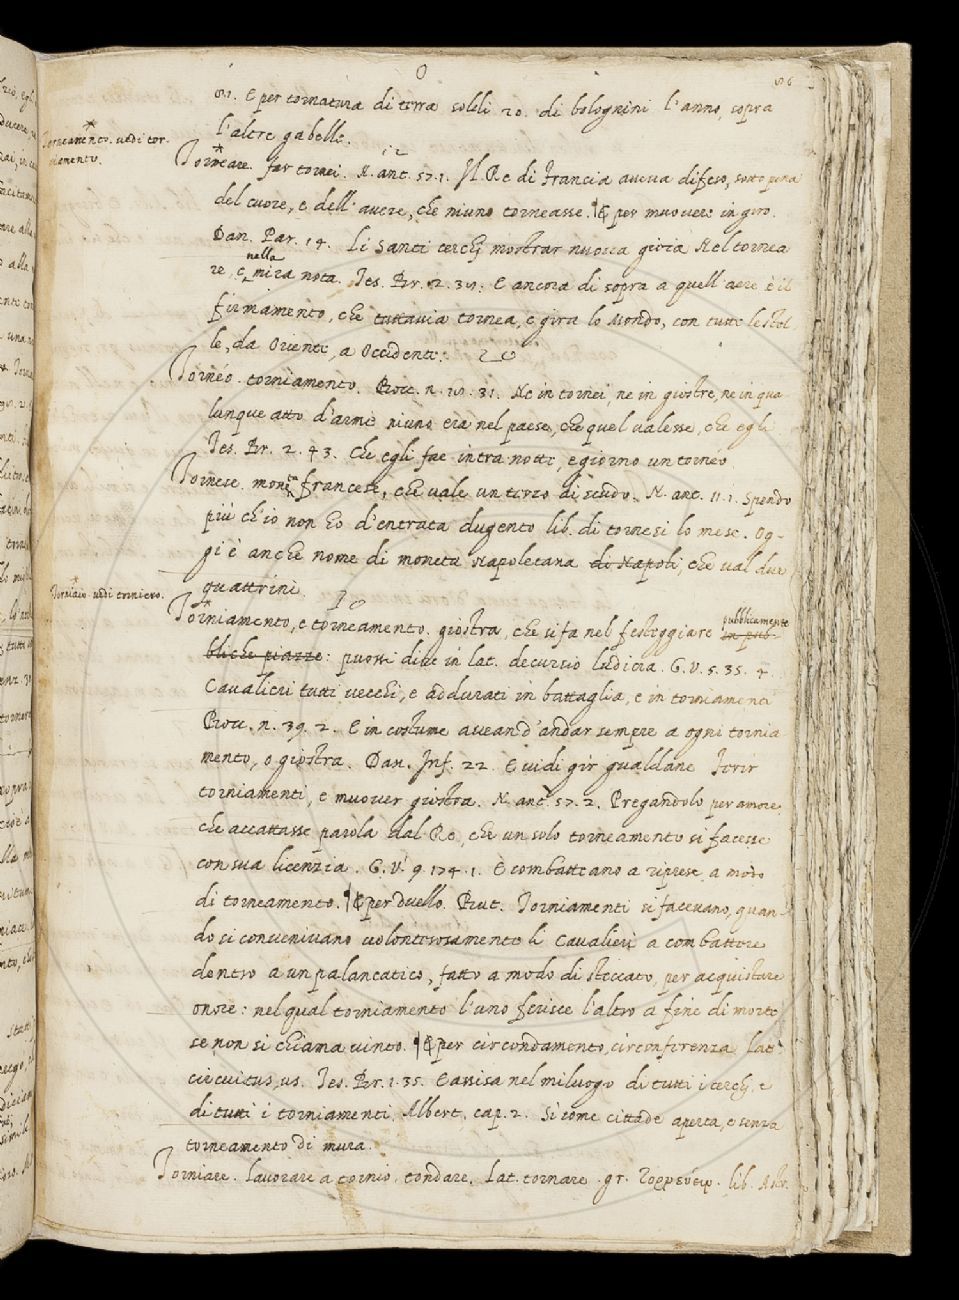 O
86
81. E per tornatura di terra soldi 20. di bolognini l'anno, sopra
l'altre gabelle.
Torneamento. vedi tor-
niamento.
Torneare. far tornei. N. ant. 57.1. Il Re di Francia aveva difeso, sotto pena
del cuore, e dell'avere, che niuno torneasse. ¶ & per muovere in giro.
Dan. Par. 14. Li Santi cerchj mostrar nuova gioia Nel tornea
re, e nella mira nota. Tes. Br. 2. 38. E ancora di sopra a quell'aere è il
firmamento, che tuttavia tornea, e gira lo Mondo, con tutte le stel
le, da Oriente, a Occidente.
Torneo. torniamento. Bocc. n. 18. 31. Ne in tornei, ne in giostre, ne in qua
lunque atto d'arme niuno era nel paese, che quel valesse, che egli
Tes. Br. 2. 43. Che egli fae intra notte, e giorno un torneo
Tornese. moneta francese, che vale un terzo di scudo. N. ant. 11.1. Spendo
più ch'io non ho d'entrata dugento lib. di tornesi lo mese. Og-
gi è anche nome di moneta Napoletana di Napoli, che val due
quattrini
Torniaio vedi torniero.
Torniamento, e torneamento. giostra, che si fa nel festeggiare pubblicamente in pub-
bliche piazze: puossi dire in lat. decursio ludicra. G.V. 5. 35. 4.
Cavalieri tutti vecchi, e addurati in battaglia, e in torniamenti
Bocc. n. 39. 2. E in costume aveand'andar sempre a ogni tornia
mento, o giostra. Dan. Inf. 22. E vidi gir gualdane Ferir
torniamenti, e muover giostra. N. ant. 57. 2. Pregandolo per amore
che accattasse parola dal Re, che un solo torneamento si facesse
con sua licenzia. G.V. 9. 174. 1. E combatteano a riprese, a modo
di torneamento. ¶ & per duello. But. Torniamenti si facevano, quan-
do si convenivano volonterosamente li Cavalieri a combattere
dentro a un palancatico, fatto a modo di steccato, per acquistare
onore: nel qual torniamento l'uno ferisce l'altro a fine di morte
se non si chiama vinto. ¶ & per circondamento, circonferenza lat.
circuitus, us. Tes. Br. 1. 35. E assisa nel miluogo di tutti i cerchj, e
di tutti i torniamenti. Albert. cap. 2. Si come cittade aperta, e senza
torneamento di mura.
Torniare. lavorare a tornio, tondare. lat. tornare. gr. τορνεύειν. lib. Astr.